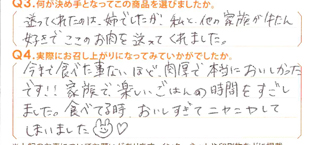 Q3.何が決め手となってこの商品を選びましたか。
送ってくれたのは、姉でしたが、私と、他の家族が牛たん
好きでここのお肉を送ってくれました。
Q4.実際にお召し上がりになってみていかがでしたか。
今まで食べた事ないほど、肉厚で本当においしかった
です!!家族で楽しいごはんの時間をすごし
ました。食べてる時、おいしすぎてニヤニヤして
しまいました♡